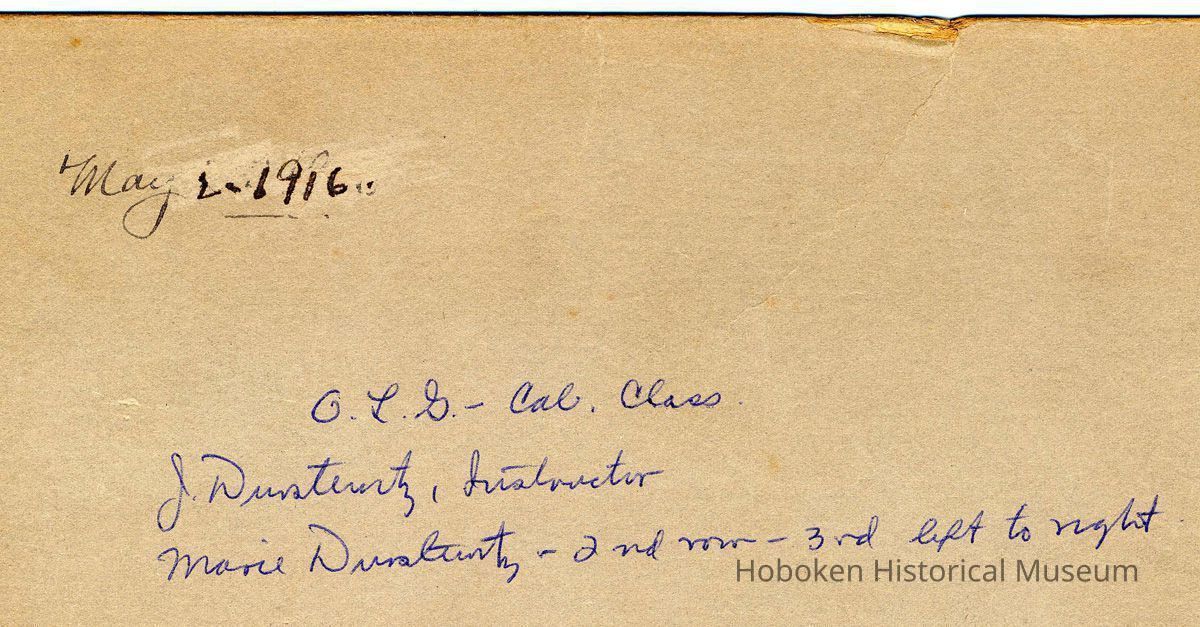 May 2-1916.
O. L. G. - Cal. Class.
J. Durstewitz, Instructor
Marie Durstewitz - 2nd row - 3rd left to right.
Hoboken Historical Museum